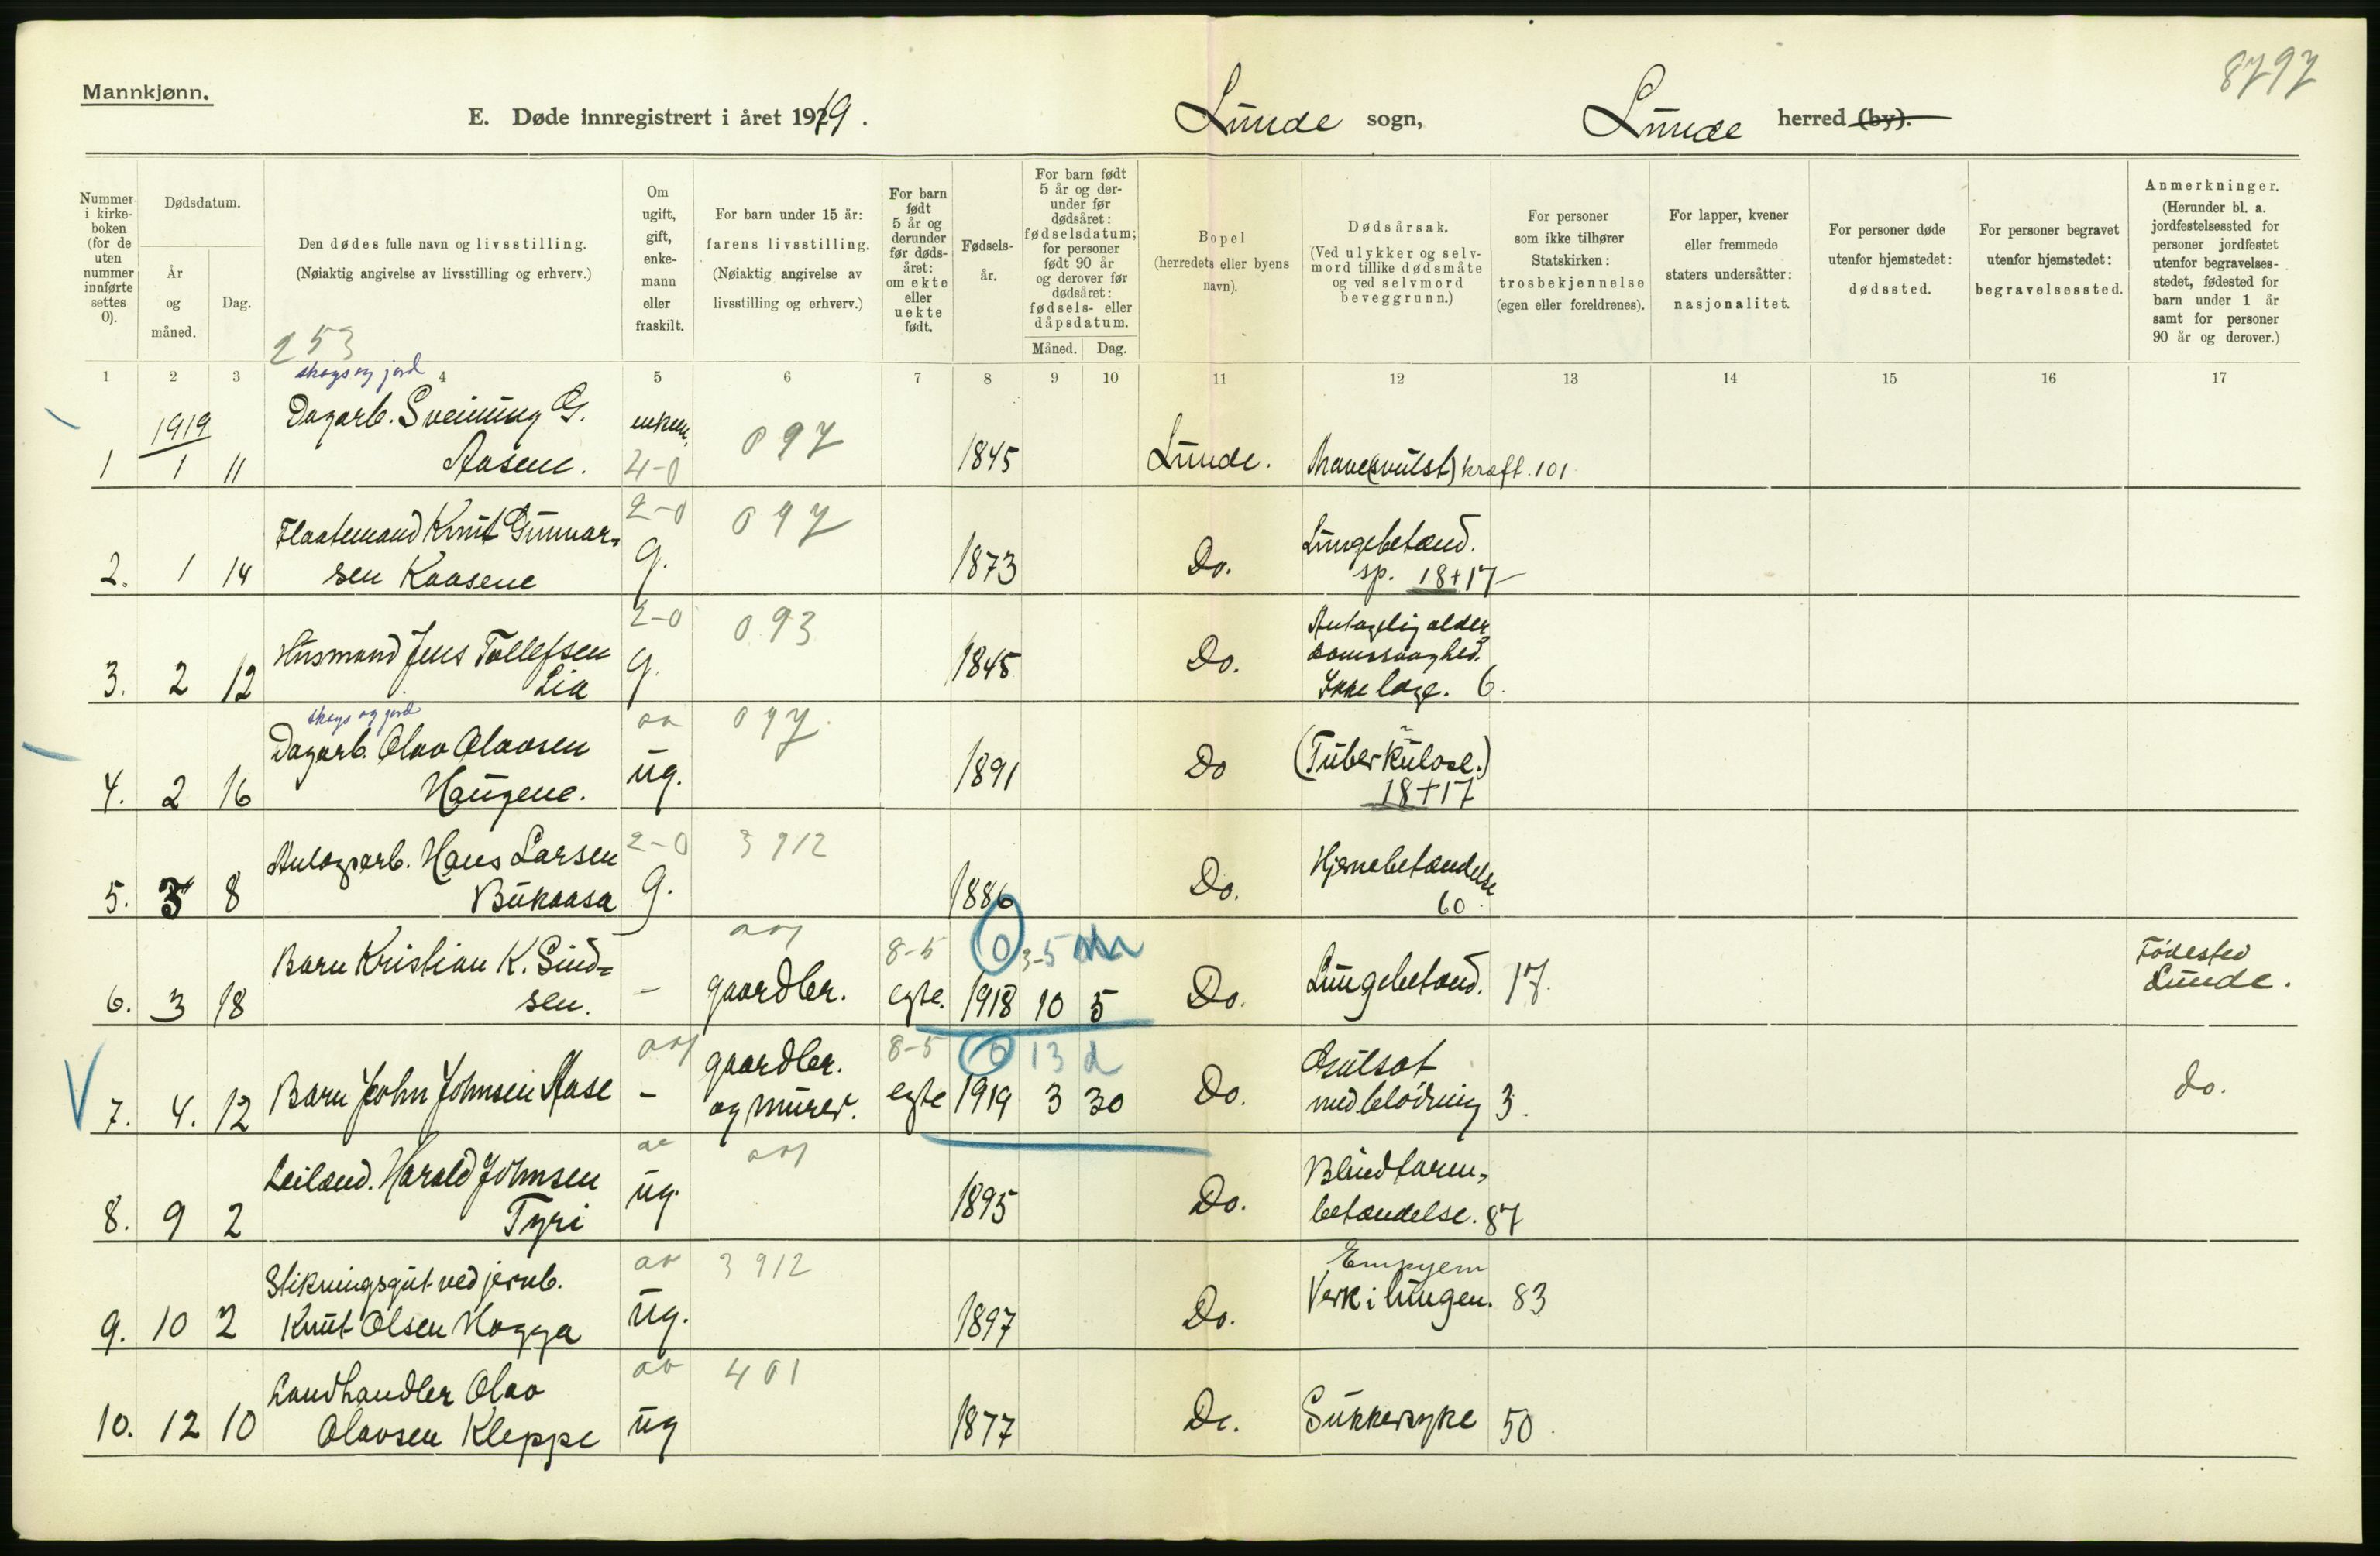 Mannkjønn.
8797
E. Døde innregistrert i året 1919. Lunde sogn, Lunde herred (by).
Nummer i kirke- boken (for de uten nummer innførte settes 0).
Dødsdatum.
År og måned.
Dag.
Den dødes fulle navn og livsstilling.
(Nøiaktig angivelse av livsstilling og erhverv.)
253
Om ugift, gift, enke- mann eller fraskilt.
For barn under 15 år:
farens livsstilling.
(Nøiaktig angivelse av
livsstilling og erhverv.)
For barn født 5 år og derunder før døds- året: om ekte eller uekte født.
Fødsels- år.
For barn født 5 år og der- under før dødsåret: fødselsdatum; for personer født 90 år og derover før dødsåret: fødsels- eller dåpsdatum.
Måned. Dag.
Bopel
(herredets eller byens
navn).
Dødsårsak.
(Ved ulykker og selv-
mord tillike dødsmåte
og ved selvmord
beveggrunn.)
For personer
som ikke tilhører
Statskirken:
trosbekjennelse
(egen eller foreldrenes).
For lapper, kvener
eller fremmede
staters undersåtter:
nasjonalitet.
For personer døde
utenfor hjemstedet:
dødssted.
For personer begravet
utenfor hjemstedet:
begravelsessted.
Anmerkninger.
(Herunder bl. a.
jordfestelsessted for
personer jordfestet
utenfor begravelses-
stedet, fødested for
barn under 1 år
samt for personer
90 år og derover.)
1 2 3 4 5 6 7 8 9 10 11 12 13 14 15 16 17
skogs og jord
1919 Dagarb. Sveinung G. enkem. 097
1 1 11 Aasene. 4-0 1845 Lunde. Mave(svulst) kræft. 101
2-0 097
Flaatemand Knut Gunnar- Lungebetænd.
2. 1 14 sen Kaasene g. 1873 Do. sp. 18+17
2-0 093 Antagelig alder
Husmand Jens Tollefsen domssvaghed.
3. 2 12 Lia g. 1845 Do. Ikke læge. 6.
skogs og jord 097
Dagarb. Olav Olavsen (Tuberkulose.)
4. 2 16 Haugene. ug. 1891 Do 18+17
Anlegsarb. Hans Larsen 2-0 3912 Hjernebetændelse
5. 3 8 Bukaasa g. 1886 Do. 60
8-5 0 3-5
Barn Kristian K. Sind- Fødested
6. 3 18 sen. - gaardbr. egte. 1918 10 5 Do. Lungebetænd. 17. Lunde.
gaardbr. 8-5 0 13 d Gulsot
7. 4. 12 Barn John Johnsen Aase - og murer. egte 1919 3 30 Do. med blødning 3. do.
Leilænd. Harald Johnsen Blindtarm-
8. 9 2 Tyri ug. 1895 Do. betændelse. 87
3912 Empyem
Stikningsgut ved jernb.
9. 10 2 Knut Olsen Hogga ug. 1897 Do. Verk i lungen. 83
401
Landhandler Olav
10. 12 10 Olavsen Kleppe ug 1877 Do. Sukkersyke 50.